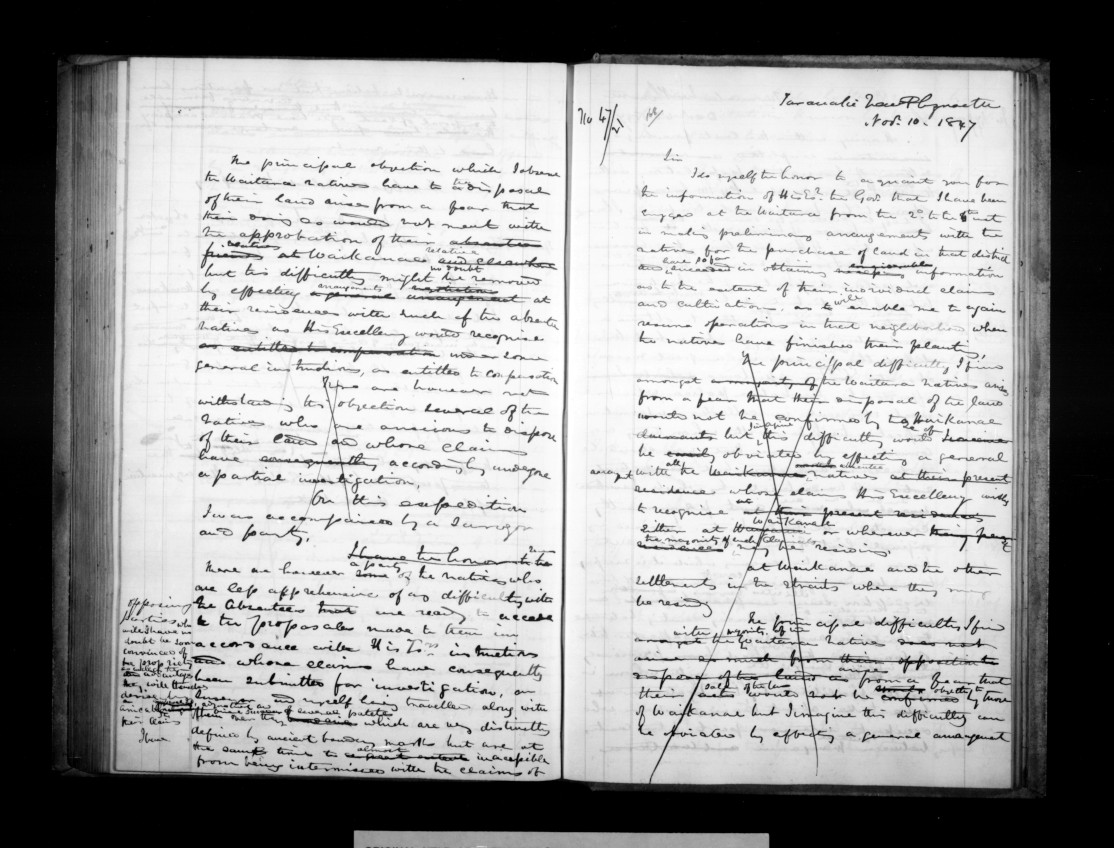 The principal objection which I observe
the Waitara natives have to the disposal
of their land arises from a fear that
their doing so would not meet with
the approbation of their absentee
friends relatives at Waikanae and elsewhere
but this difficulty might no doubt be removed
by effecting a general arrangement arrangements at
their residences with such of the absentee
natives as His Excellency would recognise
as entitled to compensation under some
general instructions, as entitled to compensation
There are however not
withstanding this objection several of the
natives who are anxious to dispose
of their land and whose claims
have consequently accordingly undergone
a partial investigation.
On this expedition
I was accompanied by a Surveyor
and party.
I have the honor to be
There are however a party some of the natives who
are less apprehensive of any difficulty with
the Absentees that are ready to accede
to the proposals made to them in
accordance with His Ex instructions
and whose claims have consequently
been submitted for investigation, and
myself having travelled along with
them over the boundaries of several patches which are very distinctly
defined by ancient boundary marks but are at
the same time to almost inaccessible
from being intermixed with the claims of
opposing
parties who
will I have no
doubt be soon
convinced of
the propriety
their claims
I have
No 47/5
Taranaki New Plymouth
Nov. 10. 1847
Sir
I do myself the honor to acquaint you for
the information of His Ex. the Gov. that I have been
engaged at the Waitara from the 2d. to the 6th inst
in making preliminary arrangements with the
natives for the purchase of land in that district
and have so far succeeded in obtaining information
as to the extent of their individual claims
and cultivations, as will enable me to again
resume operations in that neighbourhood when
the natives have finished their planting.
The principal difficulty I find
amongst the Waitara natives arises
from a fear that their disposal of the land
would not be confirmed by the Waikanae
claimants but I imagine this difficulty would
be easily obviated by effecting a general
arrangt with all the Waikanae absentee natives at their present
residence whose claims His Excellency might
to recognise at their present residences
either at Waikanae or wherever
the majority of such claimants may be residing
at Waikanae and the other
settlements in the Straits where they may
be residing
The principal difficulty I find
with the majority of the Waitara natives does not
arise so much from their opposition to
dispose of the land as arise from a fear that
their sale of the land acts would not be confirmed objected to by those
of Waikanae but I imagine this difficulty can
be obviated by effecting a general arrangement